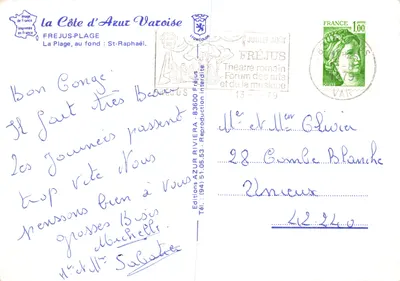 la Côte d'Azur Varoise
FREJUS-PLAGE
La Plage, au fond : St-Raphaël.
Bon Congé.
Il fait très Beau
Les Journées passent
trop vite Nous
pensons bien à vous
grosses Bises
Michelle
Mr Mme Sabatier
Editions AZUR RIVIERA, 83600 Fréjus
Tél. (94) 51.06.53 - Reproduction interdite
FRÉJUS
Théâtre romain
Forum des arts
et de la musique
FRANCE
1,00
VAR
Me Mr Olivier
28 Combe Blanche
Unieux
42240